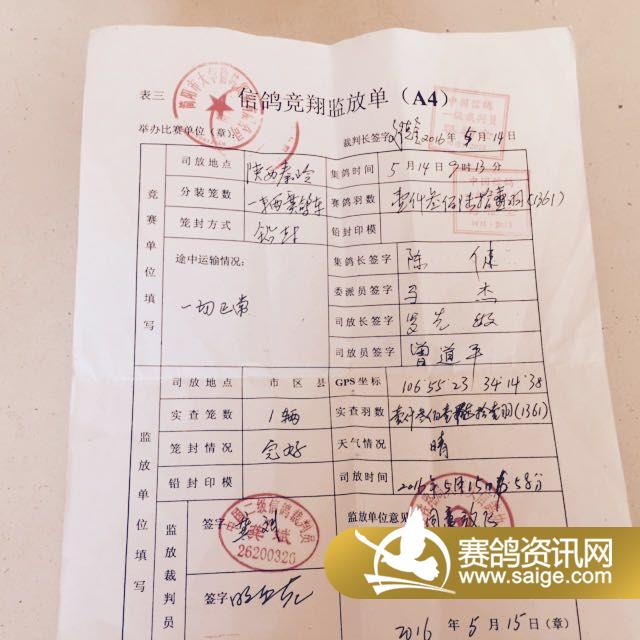 表三
信鸽竞翔监放单（A4）
举办比赛单位（章）
裁判长签字 2016 年 5 月 14 日
竞赛单位填写
司放地点 陕西秦岭 集鸽时间 5 月 14 日 9 时 13 分
分装笼数 一辆赛鸽车 赛鸽羽数 (1361)
笼封方式 铅封 铅封印模
途中运输情况： 集鸽长签字 陈
一切正常 委派员签字 马 杰
司放长签字 罗 先 敏
司放员签字 曾道平
监放单位填写
司放地点 市 区 县 GPS 坐标 106 55 23 34 14 38
实查笼数 1辆 实查羽数 (1361)
笼封情况 完好 天气情况 晴
铅封印模 司放时间 2016年5月15日 58分
监放裁判员
签字 监放单位意见 同意放飞
中国二级信鸽裁判员
龚斌
26200326
签字
2016 年 5 月 15 日（章）
中国信鸽
一级裁判员
赛鸽资讯网
www.saige.com